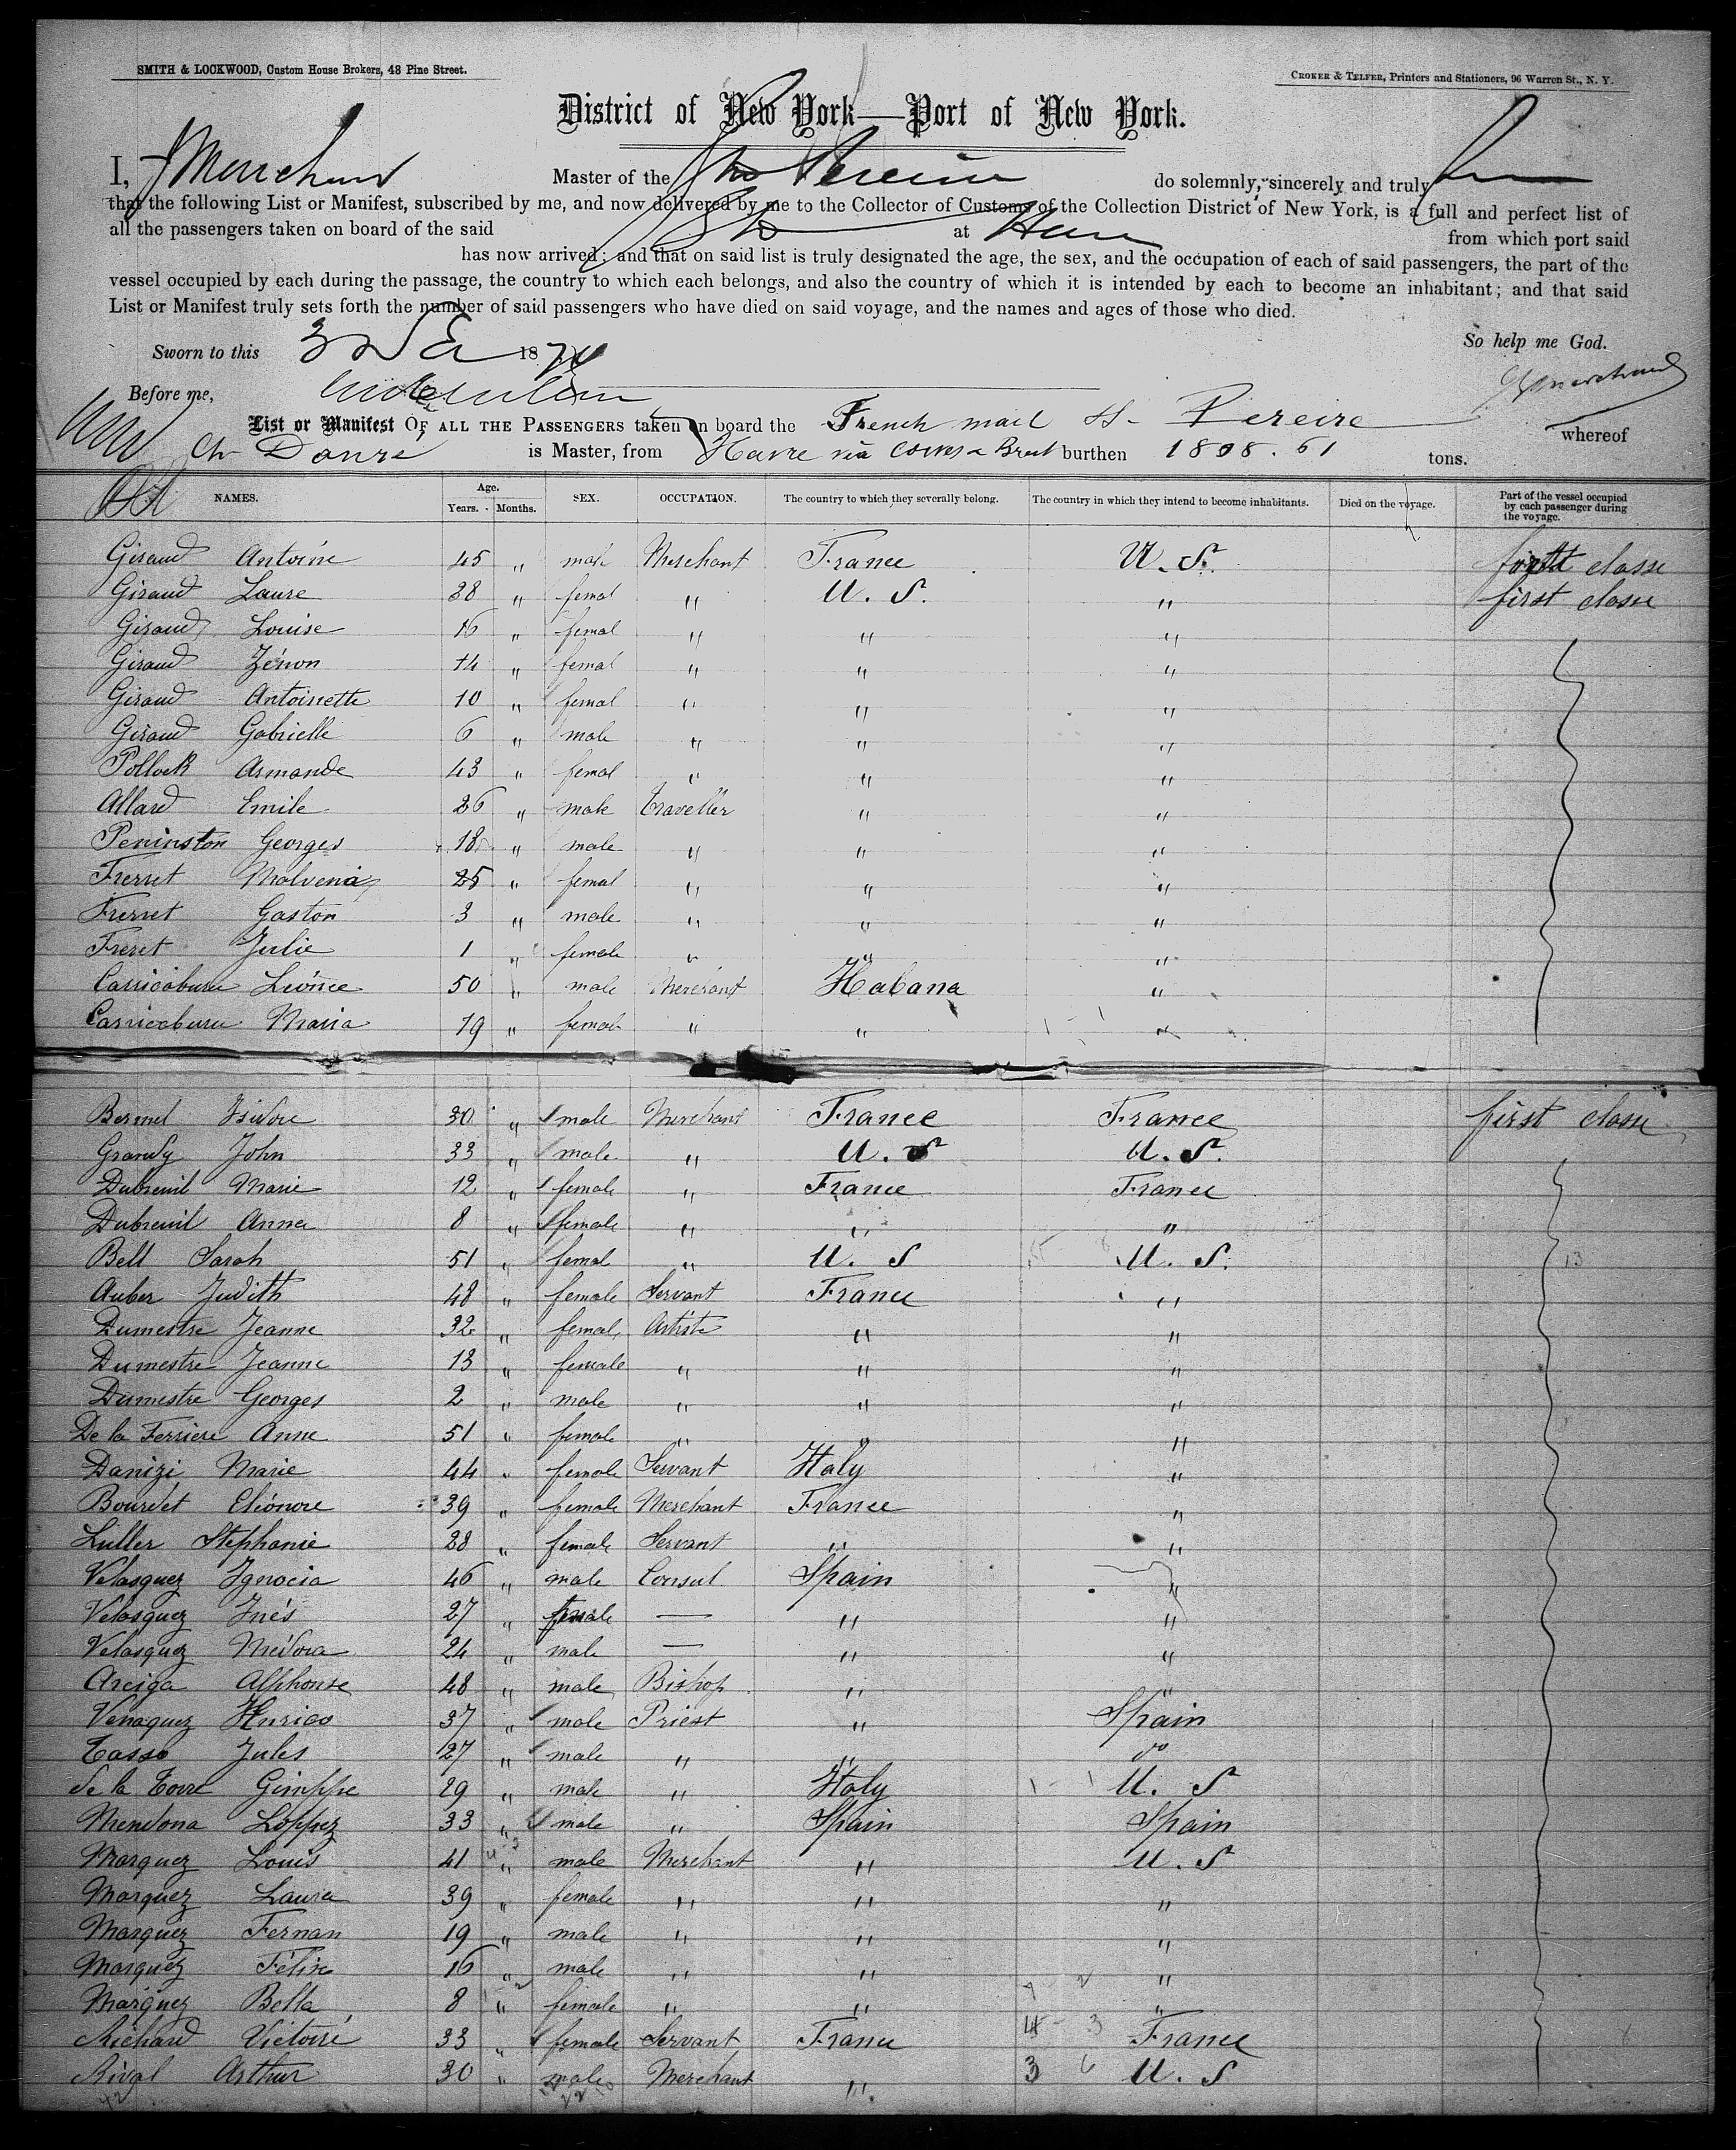 SMITH & LOCKWOOD, Custom House Brokers, 48 Pine Street.
CROKER & TELFER, Printers and Stationers, 96 Warren St., N. Y.
District of New York—Port of New York.
I, Master of the Pereire do solemnly, sincerely and truly
that the following List or Manifest, subscribed by me, and now delivered by me to the Collector of Customs of the Collection District of New York, is a full and perfect list of
all the passengers taken on board of the said at from which port said
has now arrived; and that on said list is truly designated the age, the sex, and the occupation of each of said passengers, the part of the
vessel occupied by each during the passage, the country to which each belongs, and also the country of which it is intended by each to become an inhabitant; and that said
List or Manifest truly sets forth the number of said passengers who have died on said voyage, and the names and ages of those who died.
Sworn to this 3 1874 So help me God.
Before me,
List or Manifest OF ALL THE PASSENGERS taken on board the French mail SS Pereire whereof
is Master, from Havre via Brest burthen 1808.61 tons.
NAMES. Age. Years. Months. SEX. OCCUPATION. The country to which they severally belong. The country in which they intend to become inhabitants. Died on the voyage. Part of the vessel occupied by each passenger during the voyage.
Giraud Antoine 45 " male Merchant France U.S. classe
Giraud Laure 38 " femal " U.S. " first classe
Giraud Louise 16 " femal " " "
Giraud Zénon 14 " femal " " "
Giraud Antoinette 10 " femal " " "
Giraud Gabrielle 6 " male " " "
Pollock Armande 43 " femal " " "
Allard Emile 26 " male traveller " "
Peninston Georges 18 " male " " "
Frerret Malvena 25 " femal " " "
Frerret Gaston 3 " male " " "
Freret Julie 1 " female " " "
Carricaburu Léonce 50 " male Merchant Habana "
Carricaburu Maria 19 " female " " "
Bermel Isidore 30 " male Merchant France France first classe
Grandy John 33 " male " U.S U.S.
Dubreuil Marie 12 " female " France France
Dubreuil Anna 8 " female " " "
Bell Sarah 51 " femal " U. S U. S.
Auber Judith 48 " female Servant France "
Dumestre Jeanne 32 " femal Artiste " "
Dumestre Jeanne 13 " female " " "
Dumestre Georges 2 " male " " "
De la Ferriere Anne 51 " female " " "
Danizi Marie 44 " female Servant Italy "
Bourdet Eléonore 39 " female Merchant France "
Luller Stephanie 28 " female Servant " "
Velasquez Ignocia 46 " male Consul Spain "
Velasquez Inés 27 " female — " "
Velasquez 24 " male — " "
Arciga Alphonse 48 " male Bishop " "
Venaquez Henrico 37 " male Priest " Spain
Tasso Jules 27 " male " " do
de la Torre Giuseppe 29 " male " Italy U. S
Mendona Loppez 33 " male " Spain Spain
Marquez Louis 41 " male Merchant " U. S
Marquez Laura 39 " female " " "
Marquez Fernan 19 " male " " "
Marquez Félix 16 " male " " "
Marquez Bella 8 " female " " "
Richard Victoire 33 " female Servant France France
Rival Arthur 30 " male Merchant " U. S